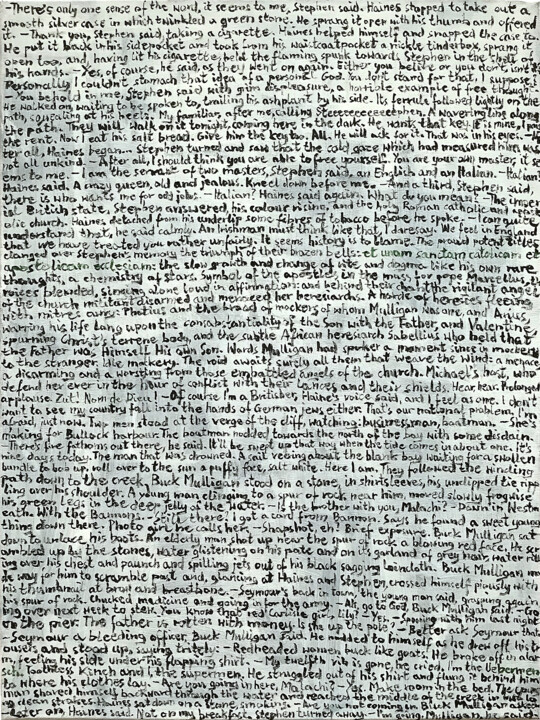 -There's only one sense of the word, it seems to me, Stephen said. Haines stopped to take out a
smooth silver case in which twinkled a green stone. He sprang it open with his thumb and offered
it. - Thank you, Stephen said, taking a cigarette. - Haines helped himself and snapped the case to.
He put it back in his sidepocket and took from his waistcoatpocket a nickle tinderbox, sprang it
open too, and, having lit his cigarette, held the flaming spunk towards Stephen in the shell of
his hands. - Yes, of course, he said, as they went on again. Either you believe or you don't, isn't it?
Personally I couldn't stomach that idea of a personal God. You don't stand for that, I suppose?
- You behold in me, Stephen said with grim displeasure, a horrible example of free thought.
He walked on, waiting to be spoken to, trailing his ashplant by his side. Its ferrule followed lightly on the
path, squealing at his heels. My familiar, after me, calling Steeeeeeeeeeephen. A wavering line along
the path. They will walk on it tonight, coming here in the dark. He wants that key. It is mine, I paid
the rent. Now I eat his salt bread. Give him the key too. All. He will ask for it. That was in his eyes. - Af
ter all, Haines began... Stephen turned and saw that the cold gaze which had measured him was
not all unkind. - After all, I should think you are able to free yourself. You are your own master, it se
ems to me. - I am the servant of two masters, Stephen said, an English and an Italian. - Italian?
Haines said. A crazy queen, old and jealous. Kneel down before me. - And a third, Stephen said,
there is who wants me for odd jobs. - Italian? Haines said again. What do you mean? - The imper
ial British state, Stephen answered, his colour rising, and the holy Roman catholic and apost
olic church. Haines detached from his underlip some fibres of tobacco before he spoke. - I can quite
understand that, he said calmly. An Irishman must think like that, I daresay. We feel in England
that we have treated you rather unfairly. It seems history is to blame. The proud potent titles
clanged over Stephen's memory the triumph of their brazen bells: et unam sanctam catholicam et
apostolicam ecclesiam: the slow growth and change of rite and dogma like his own rare
thoughts, a chemistry of stars. Symbol of the apostles in the mass for pope Marcellus, the
voices blended, singing alone loud in affirmation: and behind their chant the vigilant angel
of the church militant disarmed and menaced her heresiarchs. A horde of heresies fleeing
with mitres awry: Photius and the brood of mockers of whom Mulligan was one, and Arius,
warring his life long upon the consubstantiality of the Son with the Father, and Valentine,
spurning Christ's terrene body, and the subtle African heresiarch Sabellius who held that
the Father was Himself His own Son. Words Mulligan had spoken a moment since in mockery
to the stranger. Idle mockery. The void awaits surely all them that weave the wind: a menace,
a disarming and a worsting from those embattled angels of the church, Michael's host, who
defend her ever in the hour of conflict with their lances and their shields. Hear, hear. Prolonged
applause. Zut! Nom de Dieu! - Of course I'm a Britisher, Haines's voice said, and I feel as one. I don't
want to see my country fall into the hands of German jews either. That's our national problem, I'm
afraid, just now. Two men stood at the verge of the cliff, watching: businessman, boatman. - She's
making for Bullock harbour. The boatman nodded towards the north of the bay with some disdain.
- There's five fathoms out there, he said. It'll be swept up that way when the tide comes in about one. It's
nine days today. The man that was drowned. A sail veering about the blank bay waiting for a swollen
bundle to bob up, roll over to the sun a puffy face, salt white. Here I am. They followed the winding
path down to the creek. Buck Mulligan stood on a stone, in shirtsleeves, his unclipped tie ripp
ling over his shoulder. A young man clinging to a spur of rock near him, moved slowly frogwise
his green legs in the deep jelly of the water. - Is the brother with you, Malachi? - Down in Westm
eath. With the Bannons. - Still there? I got a card from Bannon. Says he found a sweet young
thing down there. Photo girl he calls her. - Snapshot, eh? Brief exposure. Buck Mulligan sat
down to unlace his boots. An elderly man shot up near the spur of rock a blowing red face. He scr
ambled up by the stones, water glistening on his pate and on its garland of grey hair, water rill
ing over his chest and paunch and spilling jets out of his black sagging loincloth. Buck Mulligan ma
de way for him to scramble past and, glancing at Haines and Stephen, crossed himself piously with
his thumbnail at brow and breastbone. - Seymour's back in town, the young man said, grasping again
his spur of rock. Chucked medicine and going in for the army. - Ah, go to God, Buck Mulligan said. - Go
ing over next week to stew. You know that red Carlisle girl, Lily? - Yes. - Spooning with him last night
on the pier. The father is rotten with money. - Is she up the pole? - Better ask Seymour that.
- Seymour a bleeding officer, Buck Mulligan said. He nodded to himself as he drew off his tr
ousers and stood up, saying tritely: - Redheaded women buck like goats. He broke off in alar
m, feeling his side under his flapping shirt. - My twelfth rib is gone, he cried. I'm the Uebermen
sch. Toothless Kinch and I, the supermen. He struggled out of his shirt and flung it behind him
to where his clothes lay. - Are you going in here, Malachi? - Yes. Make room in the bed. The young
man shoved himself backward through the water and reached the middle of the creek in two lo
ng clean strokes. Haines sat down on a stone, smoking. - Are you not coming in, Buck Mulligan asked.
- Later on, Haines said. Not on my breakfast. Stephen turned away. - I'm going, Mulligan